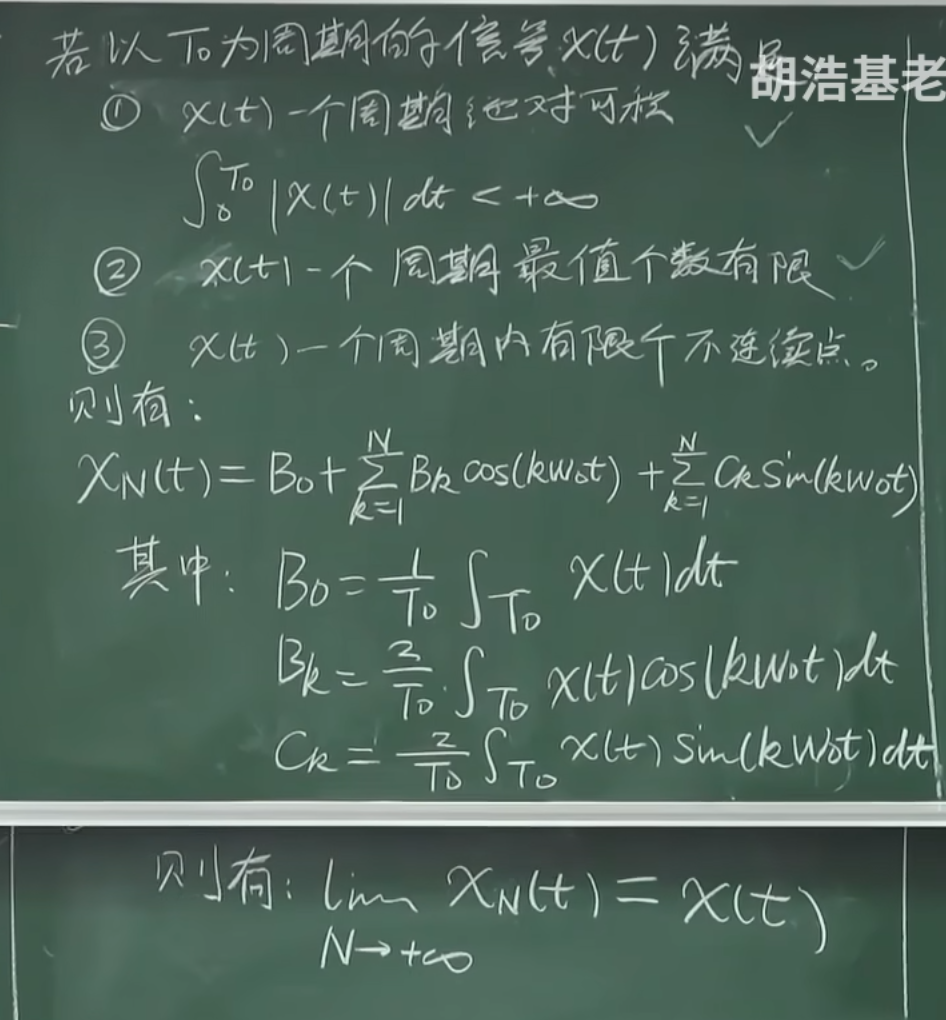 若以T₀为周期的信号x(t)满足
胡浩基老
① x(t)一个周期绝对可积
∫₀^T₀ |x(t)| dt < +∞
② x(t)一个周期最值个数有限
③ x(t)一个周期内有限个不连续点。
则有:
x_N(t) = B₀ + ∑_{k=1}^{N} B_k cos(kw₀t) + ∑_{k=1}^{N} C_k Sin(kw₀t)
其中: B₀ = 1/T₀ ∫_T₀ x(t)dt
B_k = 2/T₀ ∫_T₀ x(t)cos(kw₀t)dt
C_k = 2/T₀ ∫_T₀ x(t)Sin(kw₀t)dt
则有: lim_{N→+∞} x_N(t) = x(t)